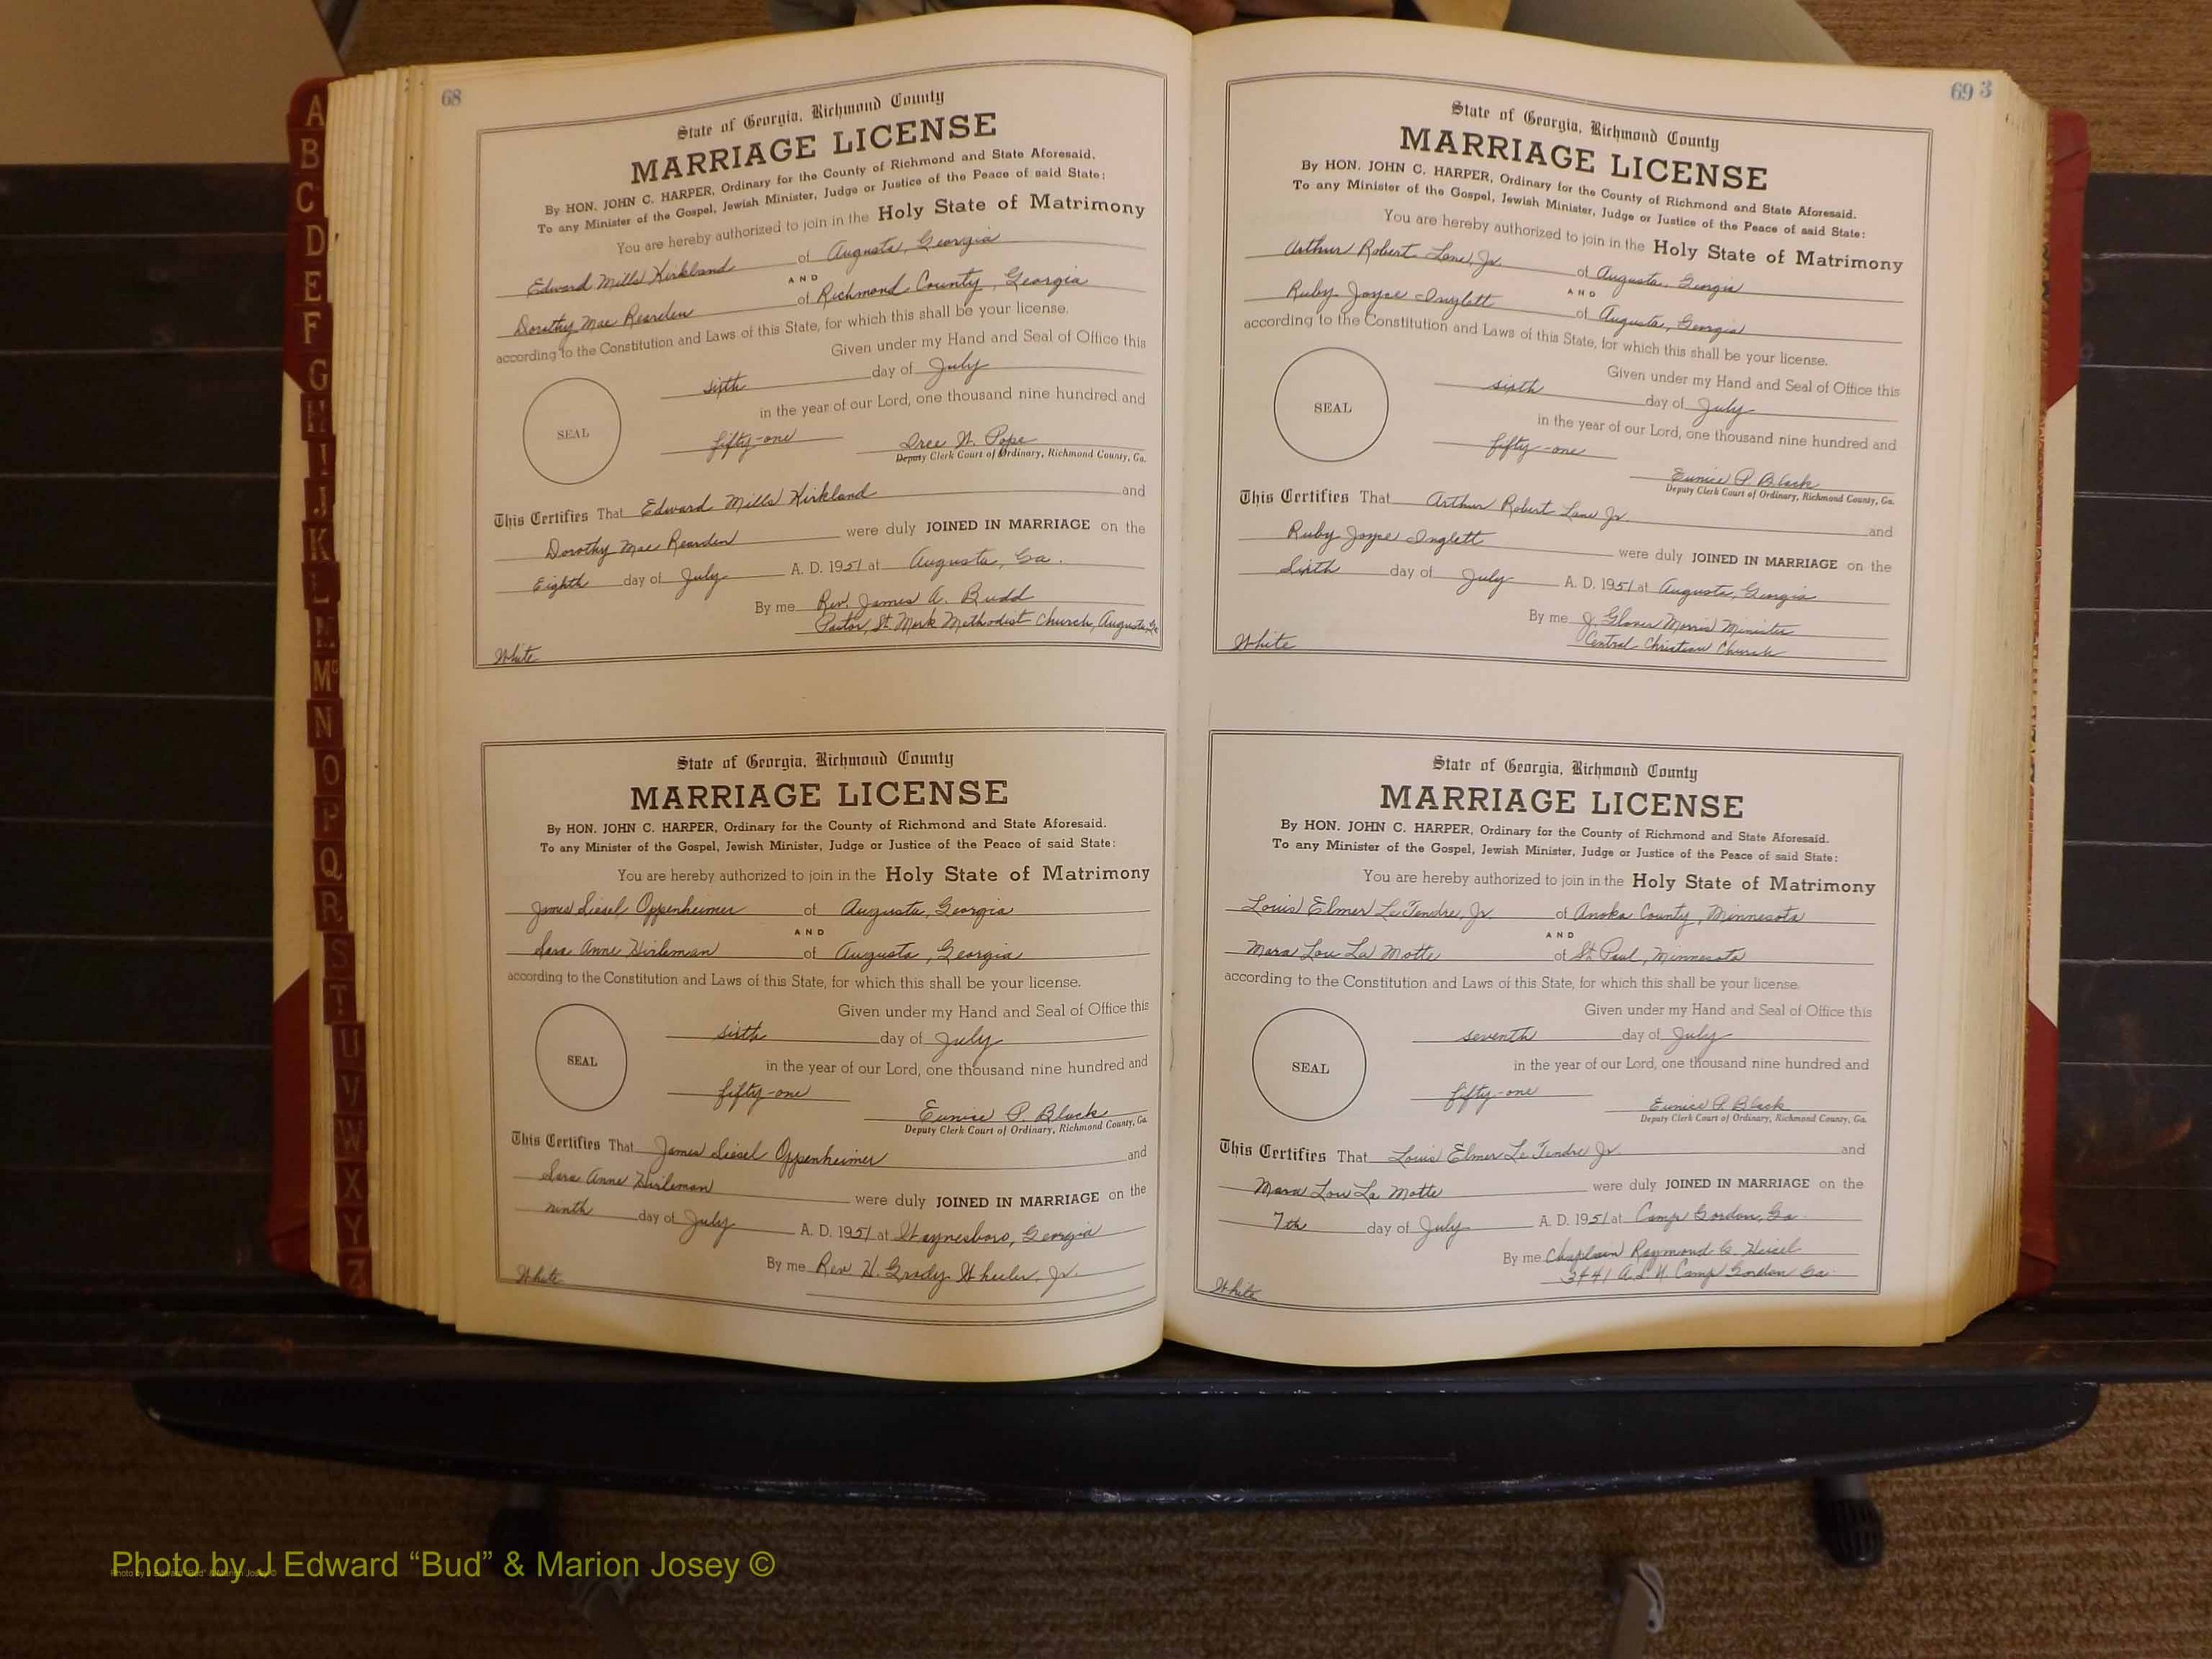 68
State of Georgia, Richmond County
MARRIAGE LICENSE
By HON. JOHN C. HARPER, Ordinary for the County of Richmond and State Aforesaid.
To any Minister of the Gospel, Jewish Minister, Judge or Justice of the Peace of said State:
You are hereby authorized to join in the Holy State of Matrimony
Edward Mills Kirkland of Augusta, Georgia
AND
Dorothy Mae Rearden of Richmond County, Georgia
according to the Constitution and Laws of this State, for which this shall be your license.
Given under my Hand and Seal of Office this
sixth day of July
in the year of our Lord, one thousand nine hundred and
SEAL
fifty-one Pope
Deputy Clerk Court of Ordinary, Richmond County, Ga.
This Certifies That Edward Mills Kirkland and
Dorothy Mae Rearden were duly JOINED IN MARRIAGE on the
Eighth day of July A. D. 1951 at Augusta, Ga.
By me Rev. James A. Budd
Pastor, St Mark Methodist Church, Augusta, Ga
White
State of Georgia, Richmond County
MARRIAGE LICENSE
By HON. JOHN C. HARPER, Ordinary for the County of Richmond and State Aforesaid.
To any Minister of the Gospel, Jewish Minister, Judge or Justice of the Peace of said State:
You are hereby authorized to join in the Holy State of Matrimony
James Oppenheimer of Augusta, Georgia
AND
Sara Anne of Augusta, Georgia
according to the Constitution and Laws of this State, for which this shall be your license.
Given under my Hand and Seal of Office this
sixth day of July
in the year of our Lord, one thousand nine hundred and
SEAL
fifty-one Eunice P. Black
Deputy Clerk Court of Ordinary, Richmond County, Ga.
This Certifies That James Oppenheimer and
Sara Anne were duly JOINED IN MARRIAGE on the
ninth day of July A. D. 1951 at Waynesboro, Georgia
By me Rev H. Grady Wheeler, Jr.
White
69 3
State of Georgia, Richmond County
MARRIAGE LICENSE
By HON. JOHN C. HARPER, Ordinary for the County of Richmond and State Aforesaid.
To any Minister of the Gospel, Jewish Minister, Judge or Justice of the Peace of said State:
You are hereby authorized to join in the Holy State of Matrimony
Arthur Robert Lane, Jr. of Augusta, Georgia
AND
Ruby Joyce Inglett of Augusta, Georgia
according to the Constitution and Laws of this State, for which this shall be your license.
Given under my Hand and Seal of Office this
sixth day of July
in the year of our Lord, one thousand nine hundred and
SEAL
fifty-one Eunice P. Black
Deputy Clerk Court of Ordinary, Richmond County, Ga.
This Certifies That Arthur Robert Lane Jr. and
Ruby Joyce Inglett were duly JOINED IN MARRIAGE on the
Sixth day of July A. D. 1951 at Augusta, Georgia
By me J. Glover Morris Minister
Central Christian Church
White
State of Georgia, Richmond County
MARRIAGE LICENSE
By HON. JOHN C. HARPER, Ordinary for the County of Richmond and State Aforesaid.
To any Minister of the Gospel, Jewish Minister, Judge or Justice of the Peace of said State:
You are hereby authorized to join in the Holy State of Matrimony
Louis Elmer Le Tendre, Jr of Anoka County, Minnesota
AND
Mara Lou La Motte of St. Paul, Minnesota
according to the Constitution and Laws of this State, for which this shall be your license.
Given under my Hand and Seal of Office this
seventh day of July
in the year of our Lord, one thousand nine hundred and
SEAL
fifty-one Eunice P. Black
Deputy Clerk Court of Ordinary, Richmond County, Ga.
This Certifies That Louis Elmer Le Tendre Jr. and
Mara Lou La Motte were duly JOINED IN MARRIAGE on the
7th day of July A. D. 1951 at Camp Gordon, Ga.
By me Chaplain Raymond Heisel
3441 Camp Gordon Ga.
White
A
B
C
D
E
F
G
H
I
J
K
L
M
Mc
N
O
P
Q
R
S
T
U
V
W
X
Y
Z
Photo by J Edward “Bud” & Marion Josey ©
Photo by J Edward “Bud” & Marion Josey ©